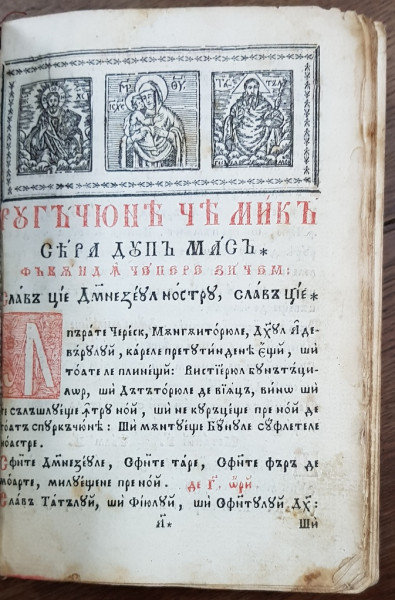 МР ѲУ
РУГЪЧЮНѢ ЧѢ МИ́КЪ
СѢ́РА ДУПЪ МА́СЪ*
ФЪКѪНД Ꙟ ЧѢПЕРЕ ЗИЧЕМ:
Сла́въ ці́е Дмнезеул но́стру, сла́въ ці́е*
Ꙟпъра́те Чере́ск, Мѫнгѫито́рюле, Дхул А́де-
въ́рулуй, ка́реле претути́нденѣ Є́щй, ши́
то́ате ле плине́щй: Вистїе́рюл бунътъци-
лѡр, ши́ Дътъто́рюле де вїя́цъ, ви́нѡ ши́
те сълъшлуе́ще ꙟтру но́й, ши́ не куръце́ще пре но́й де
то́атъ спуркъчю́нѣ: Ши́ мѫнтуе́ще Бу́нуле су́флетеле
ноа́стре.
Сфи́те Дмнезе́уле, Сфи́те та́ре, Сфи́те фъръ де
моа́рте, милуе́щене пре но́й. де г҃. ѡрй.
Сла́въ Та́тълуй, ши́ Фі́юлуй, ши́ Сфи́тулуй Дх:
Ши́